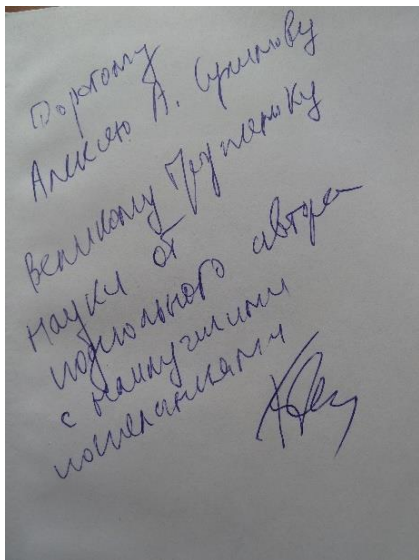 Дорогому
Алексею А.
Великому Труженику
науки от
подпольного автора
с наилучшими
пожеланиями